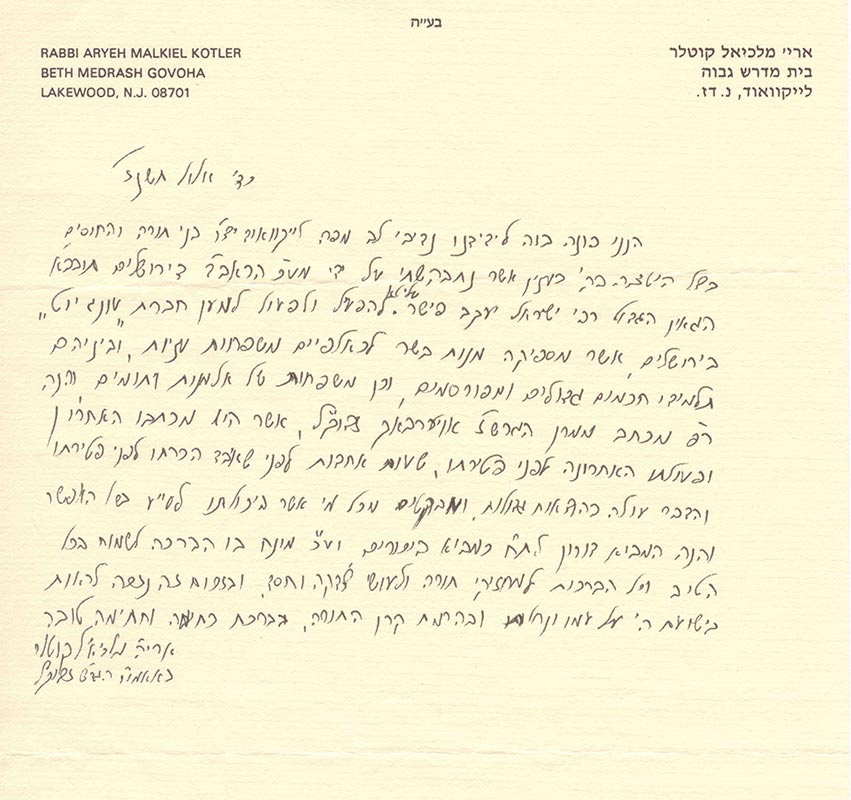 בעי״ה
RABBI ARYEH MALKIEL KOTLER
BETH MEDRASH GOVOHA
LAKEWOOD, N.J. 08701
ארי׳ מלכיאל קוטלר
בית מדרש גבוה
לייקוואוד, נ. דז.
כד׳ אלול תשנ״ז
הנני פונה בזה לידידנו נדיבי לב מפה לייקוואוד יצ״ו בני תורה והחוסים
בצל הישיבה בה׳ בענין אשר נתבקשתי על ידי מע״כ הראב״ד דירושלים תובב״א
הגאון הגדול רבי ישראל יעקב פישר שליט״א, להפעל ולפעול למען חברת "עונג יו״ט"
בירושלים, אשר מספיקה מנות בשר לכאלפיים משפחות עניות, וביניהם
תלמידי חכמים גדולים ומפורסמים, וכן משפחות של אלמנות ויתומים והנה
רצ״פ מכתב ממרן הגרש״ז אויערבאך זצוק״ל, אשר היא מכתבו האחרון
ופעולתו האחרונה לפני פטירתו, שעות אחדות לפני שאבד הכרתו לפני פטירתו
והדבר עולה בהוצאות גדולות, ומבקשים מכל מי אשר ביכולתו לסייע בכל האפשר
והנה המביא דורון לת״ח כמביא ביכורים, וע״כ מונח בו הברכה לשמוח בכל
הטוב וכל הברכות למחזיקי תורה ולעושי צדקה וחסד, ובזכות זה נזכה לראות
בישועת ה׳ על עמו ונחלתו ובהרמת קרן התורה, בברכת כתיבה וחתימה טובה
אריה מלכיאל קוטלר
באאמו״ר הגר״ש זצוק״ל